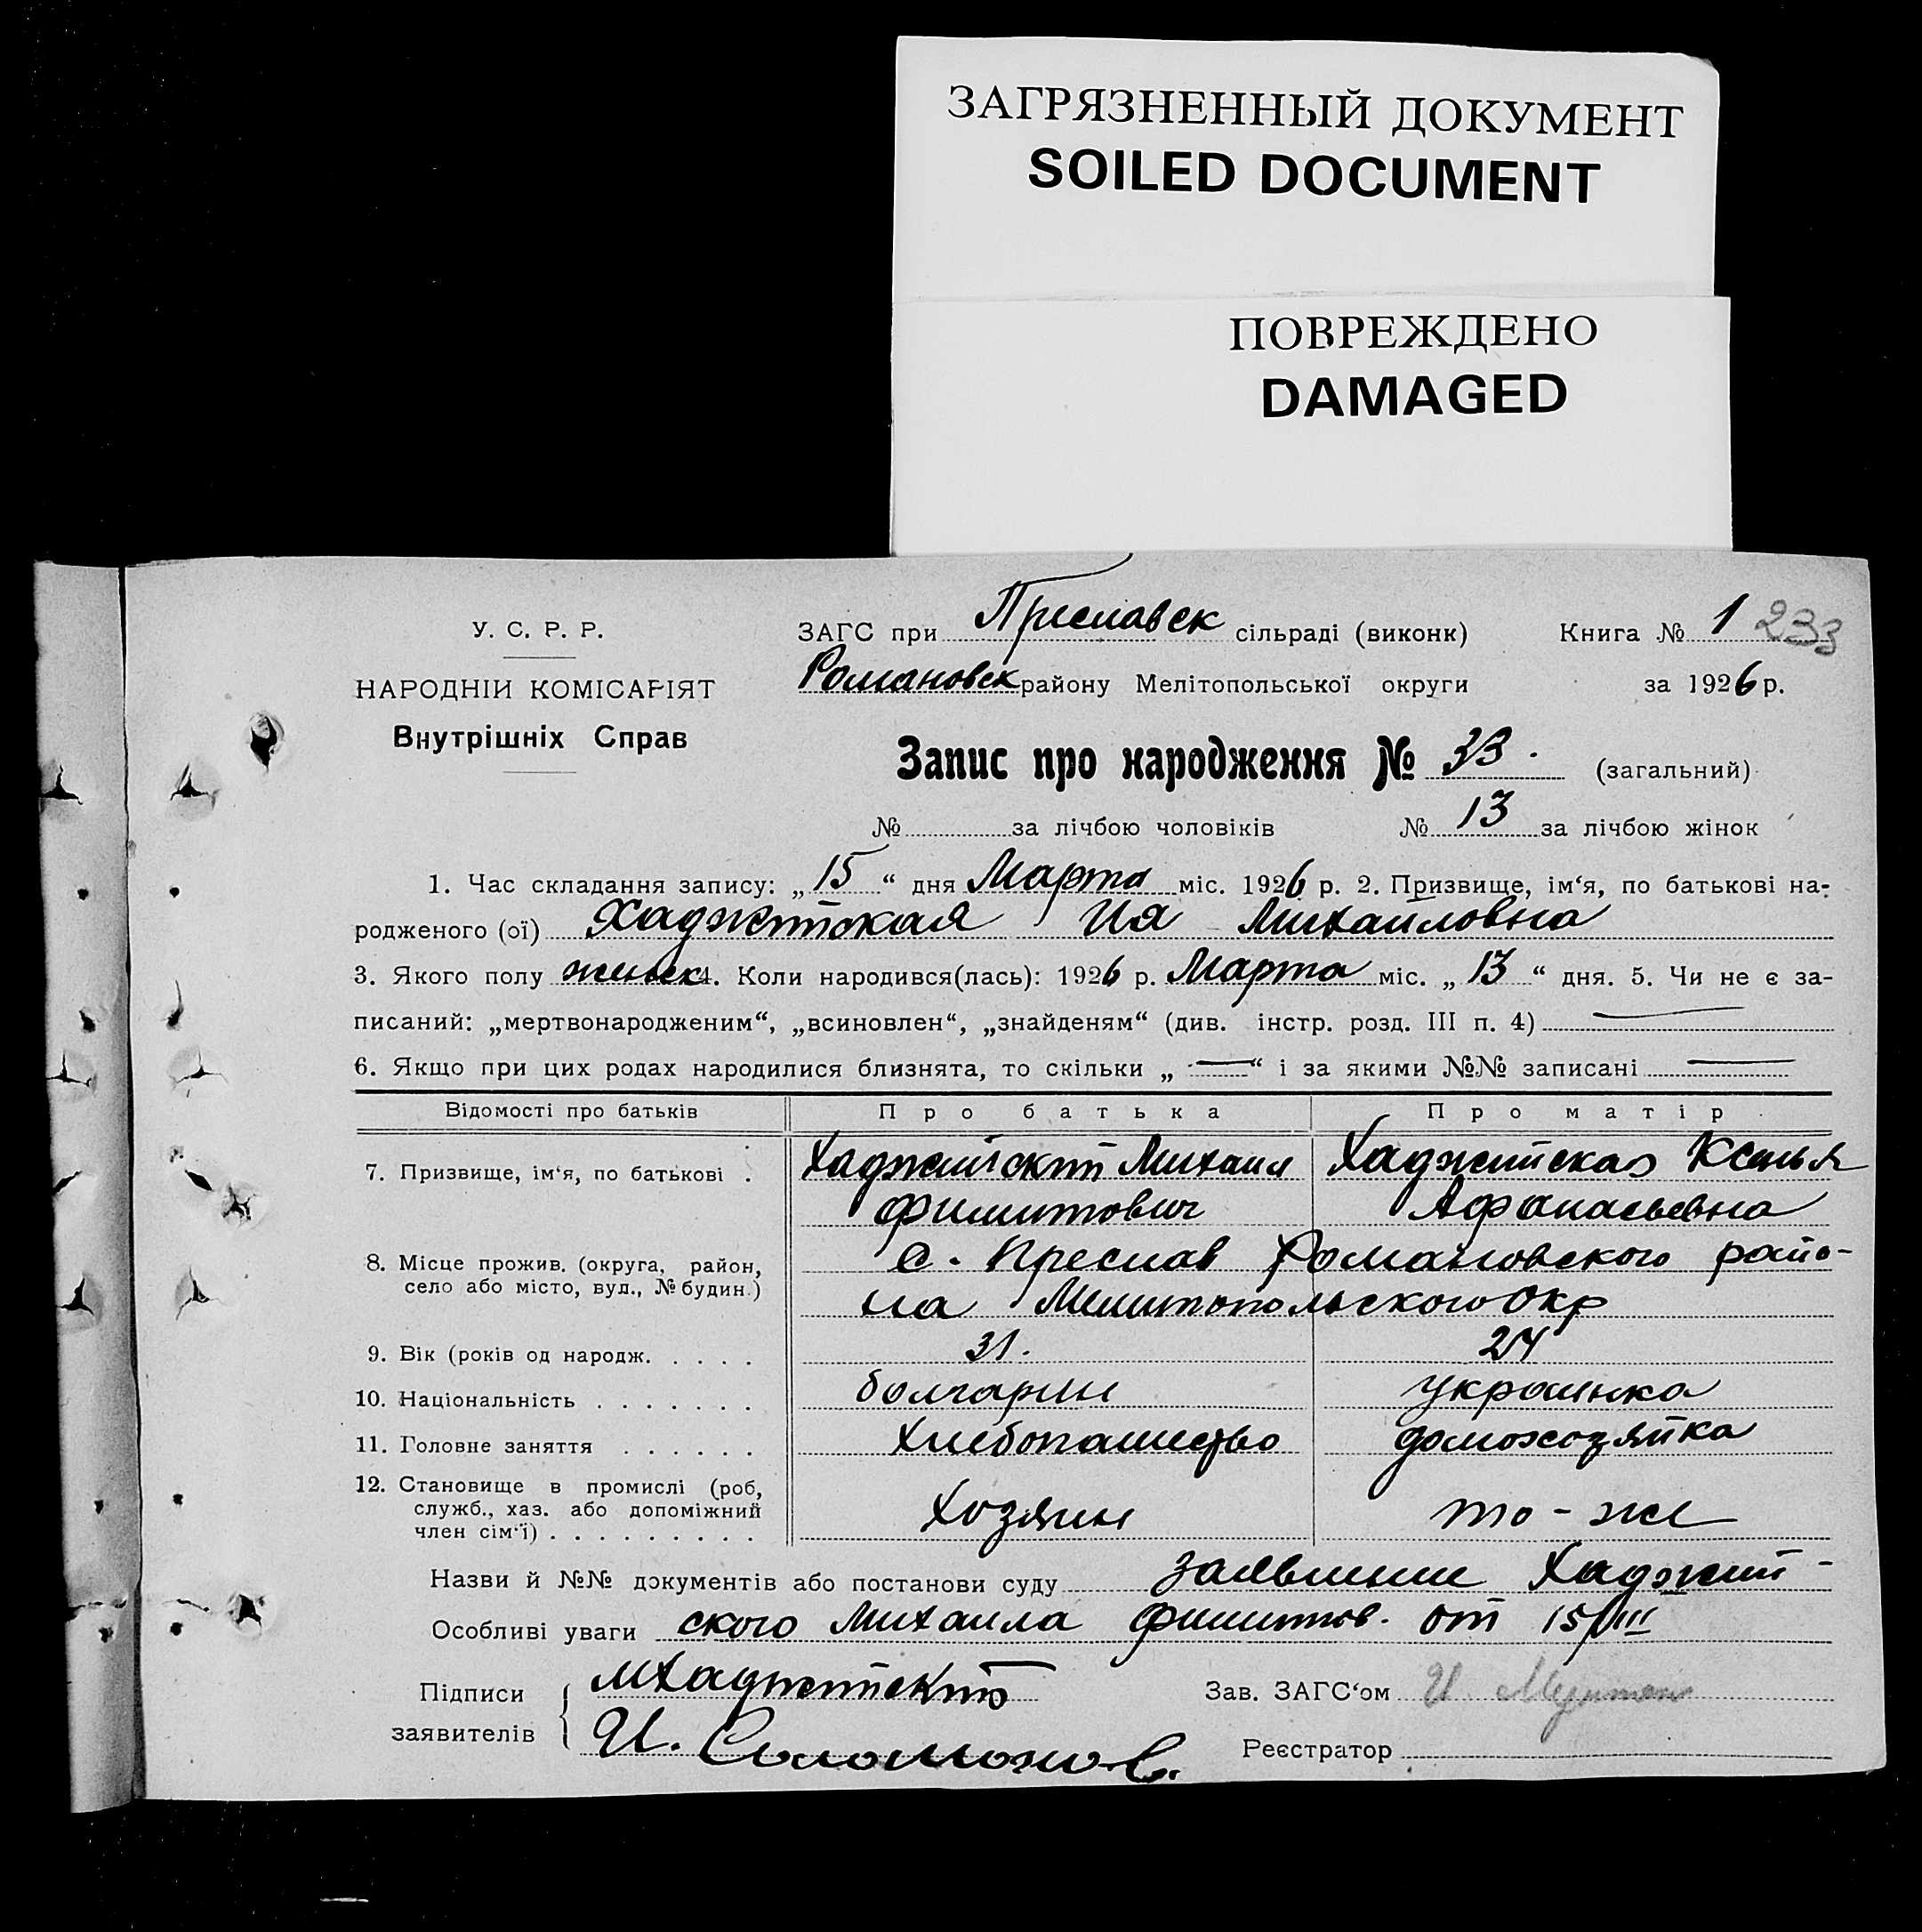 ЗАГРЯЗНЕННЫЙ ДОКУМЕНТ
SOILED DOCUMENT
ПОВРЕЖДЕНО
DAMAGED
У. С. Р. Р.
НАРОДНІЙ КОМІСАРІЯТ
Внутрішніх Справ
ЗАГС при Преславск сільраді (виконк) Книга № 1 233
Романовск району Мелітопольської округи за 1926 р.
Запис про народження № 33. (загальний)
№ за лічбою чоловіків № 13 за лічбою жінок
1. Час складання запису: „15“ дня Марта міс. 1926 р. 2. Призвище, ім‘я, по батькові на-
родженого (ої) Хаджийская Ия Михайловна
3. Якого полу женск 4. Коли народився(лась): 1926 р. Марта міс. „13“ дня. 5. Чи не є за-
писаний: „мертвонародженим“, „всиновлен“, „знайденям“ (див. інстр. розд. III п. 4) —
6. Якщо при цих родах народилися близнята, то скільки „—“ і за якими №№ записані —
Відомості про батьків Про батька Про матір
7. Призвище, ім‘я, по батькові . Хаджийский Михаил Хаджийская Ксенья
Филитович Афанасьевна
8. Місце прожив. (округа, район, село або місто, вул., № будин.) с. Преслав Романовского райо-
на Мелитопольского Окр
9. Вік (років од народж. . . . . 31. 24
10. Національність . . . . . . . болгарин украинка
11. Головне заняття . . . . . . Хлебопашество домохозяйка
12. Становище в промислі (роб,
служб., хаз. або допоміжний
член сім‘ї) . . . . . . . . . Хозяин то-же
Назви й №№ документів або постанови суду заявление Хаджий-
Особливі уваги ского Михаила Филитов. от 15/III
Підписи заявителів МХаджийский
И. Соломонов.
Зав. ЗАГС‘ом И.
Реєстратор